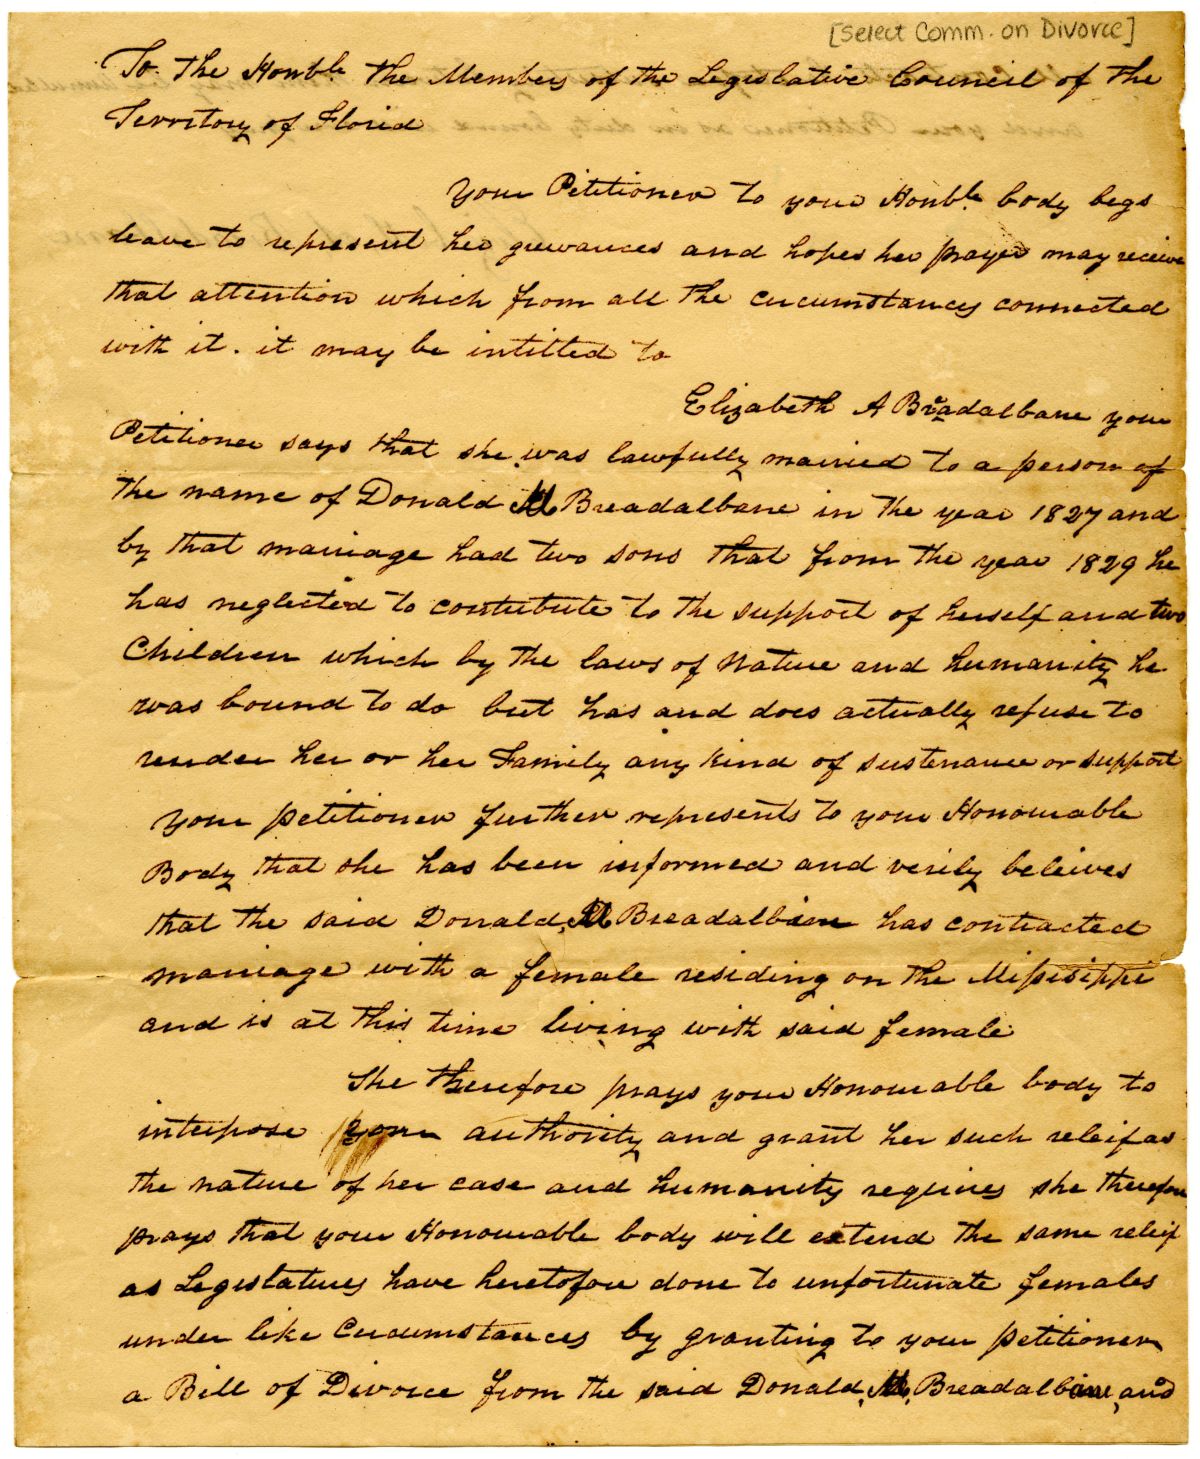 [Select Comm. on Divorce]
To The Honble The Members of the Legislative Council of The
Territory of Florid
Your Petitioner to your Honble body begs
leave to represent her grievances and hopes her prayer may receive
that attention which from all The circumstances connected
with it. it may be intitled to
Elizabeth A Breadalbane your
Petitioner says that she was lawfully married to a person of
The name of Donald M Breadalbane in The year 1827 and
by that marriage had two sons That from The year 1829 he
has neglected to contribute to The support of herself and two
Children which by The laws of Nature and humanity he
was bound to do but has and does actually refuse to
render her or her Family any kind of sustenance or support
Your petitioner further represents to your Honourable
Body that she has been informed and verily beleives
that The said Donald, M Breadalbane has contracted
marriage with a female residing on The Missisippi
and is at This time living with said female
She Therefore prays your Honourable body to
interpose your authority and grant her such releif as
The nature of her case and humanity requires she therefore
prays that your Honourable body will extend The same releif
as Legislatures have heretofore done to unfortunate females
under like Circumstances by granting to your petitioner
a Bill of Divorce from The said Donald, M, Breadalbane, and